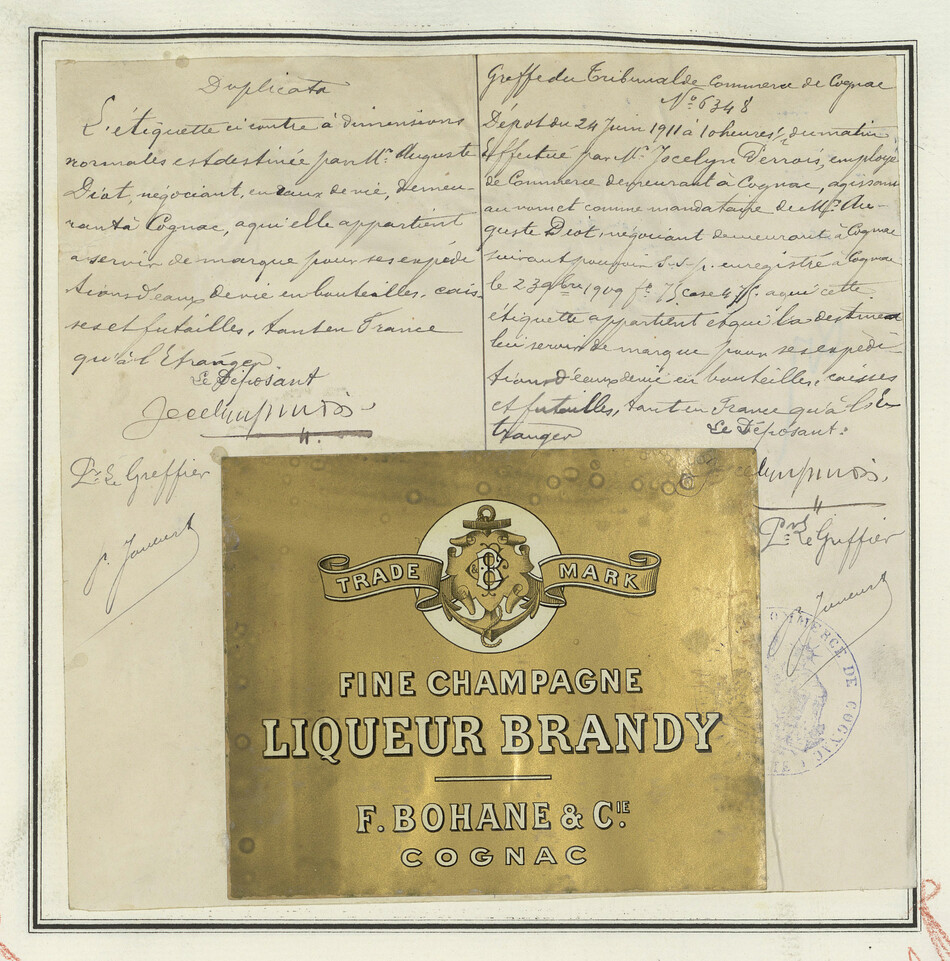 Duplicata
L'étiquette ci contre à dimensions
normales est destinée par Mr. Auguste
Diot, négociant, en eaux de vie, demeu-
rant à Cognac, à qui elle appartient
a servir de marque pour ses expédi
tions d'eaux de vie en bouteilles, cais-
ses et futailles, tant en France
qu'à l'Etranger
Le Déposant
Pr. Le Greffier
Greffe du Tribunal de Commerce de Cognac
No. 6348
Dépot du 24 Juin 1911 à 10 heures du matin
Effectué par Mr. Jocelyn Perrois, employé
de Commerce demeurant à Cognac, agissant
au nom et comme mandataire de Mr. Au-
guste Diot, négociant demeurant à Cognac
suivant pouvoir s.s.p. enregistré à Cognac
le 23 9bre 1909 fo. 75 case 475. à qui cette
étiquette appartient et qui la destine à
lui servir de marque pour ses expédi-
tions d'eaux de vie en bouteilles, caisses
et futailles, tant en France qu'à l'E
tranger
Le Déposant:
Pr. Le Greffier
COMMERCE DE COGNAC
TRADE MARK
FINE CHAMPAGNE
LIQUEUR BRANDY
F. BOHANE & CIE.
COGNAC